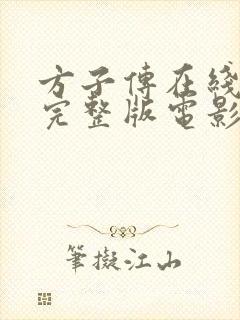 方子傳在綫
完整版電影
筆擬江山